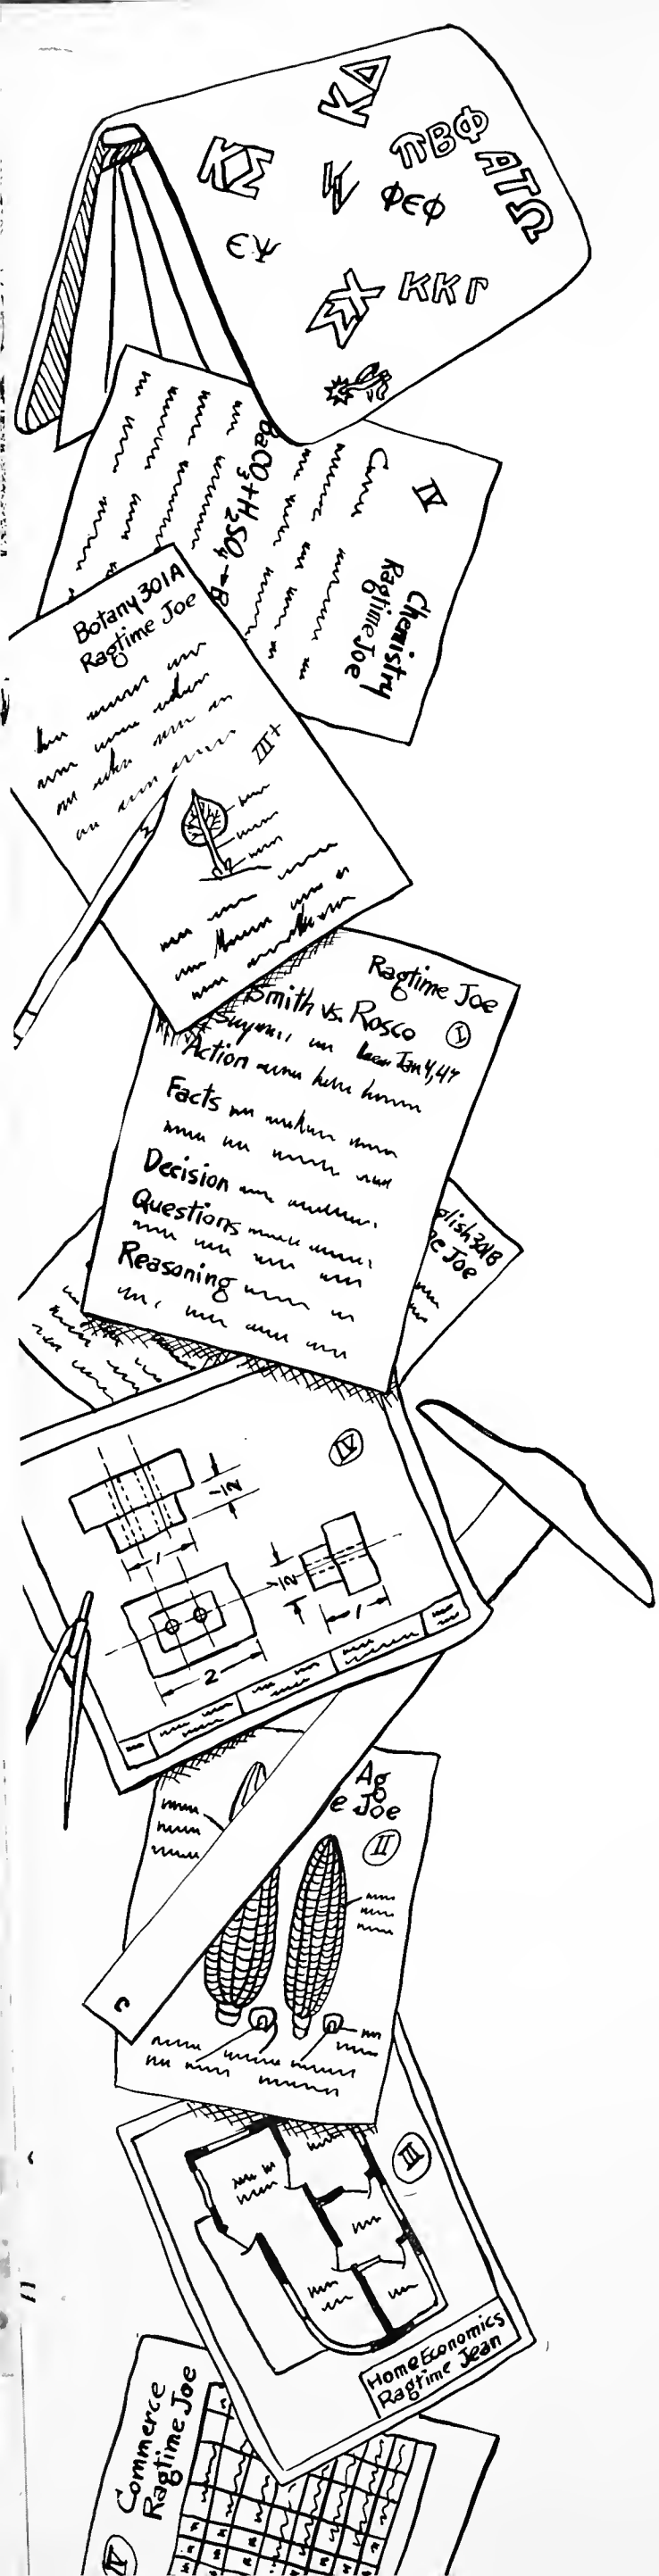 ΚΔ
ΚΣ
ΠΒΦ
ΑΤΩ
ΦΕΦ
ΕΨ
ΣΧ
ΚΚΓ
IV
Chemistry
Ragtime Joe
BaCO3+H2SO4→B
Botany 301A
Ragtime Joe
III+
Ragtime Joe
Smith vs. Rosco
I
Jan 4, 47
Action
Facts
Decision
Questions
Reasoning
glish 341B
e Joe
IV
1/2
1
1/2
1
2
Ag
e Joe
II
III
Home Economics
Ragtime Jean
Commerce
Ragtime Joe
IV